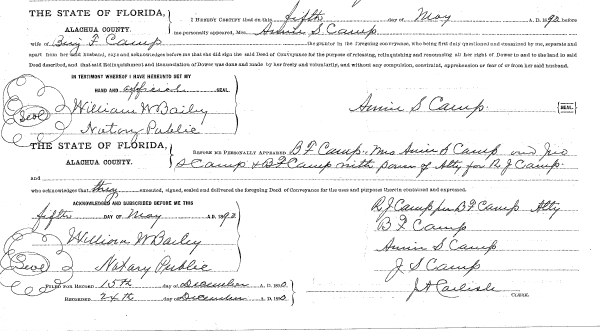 THE STATE OF FLORIDA,
ALACHUA COUNTY.
I HEREBY CERTIFY that on this fifth day of May A. D. 1892 before
me personally appeared, Mrs. Annie S Camp
wife of Benj F. Camp the grantor in the foregoing conveyance, who being first duly questioned and examined by me, separate and
apart from her said husband, says and acknowledges before me that she did sign the said Deed of Conveyance for the purpose of releasing, relinquishing and renouncing all her right of Dower in and to the land in said
Deed described, and that said Relinquishment and Renunciation of Dower was done and made by her freely and voluntarily, and without any compulsion, constraint, apprehension or fear of or from her said husband.
IN TESTIMONY WHEREOF I HAVE HEREUNTO SET MY
HAND AND official SEAL.
William W Baily
Notary Public
Annie S Camp. SEAL
Seal
THE STATE OF FLORIDA,
ALACHUA COUNTY.
BEFORE ME PERSONALLY APPEARED B F Camp. Mrs Annie S Camp and
S Camp & B F Camp with power of Atty for R J Camp.
and
who acknowledges that they executed, signed, sealed and delivered the foregoing Deed of Conveyance for the uses and purposes therein contained and expressed.
ACKNOWLEDGED AND SUBSCRIBED BEFORE ME THIS
fifth DAY OF May A. D. 1892
William W Bailey
Seal
Notary Public
R J Camp per B F Camp Atty
B F Camp
Annie S Camp
J S Camp
FILED FOR RECORD 15th day of December A. D. 1890
RECORDED 24th day of December A. D. 1890
J A Carlisle CLERK.